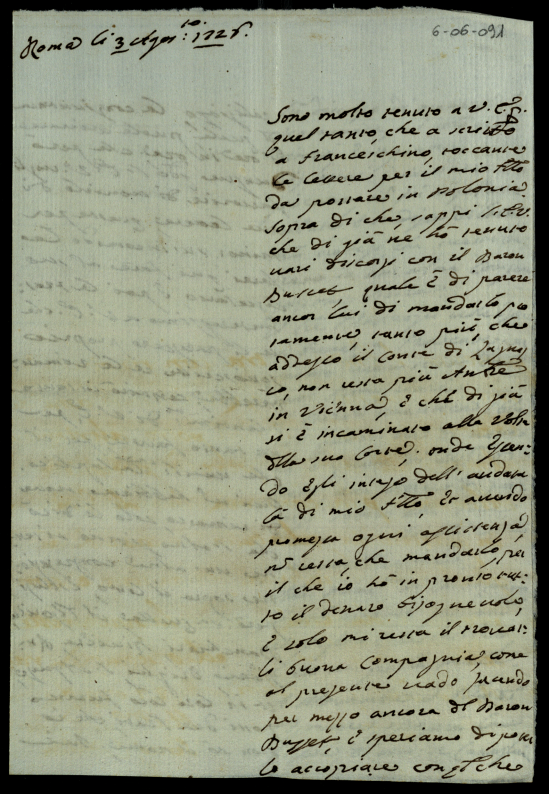 6-06-091
Roma li 3 Agos:to 1726.
Sono molto tenuto a V. E.
quel tanto, che a scritto
a Franceschino, toccante
le lettere per il mio figlio
da portare in Polonia
sopra di che, sappi
che di già ne hò tenuto
vari discorsi con il Baron
quale è di parere
ancor lui di mandarlo
tanto più, che
adesso il Conte di
non resta più
in Vienna, è che di già
si è incaminato alla volta
della sua Corte. onde
do Egli inteso dell' andata
là di mio figlio, et avendo
promessa ogni assistenza
resta, che mandarlo, per
il che io hò in pronto tut:
to il denaro bisognevole,
è solo mi resta il trovar:
li buona Compagnia, come
al presente vado facendo
per mezzo ancora del Baron
è speriamo di poter
lo accoppiare con che